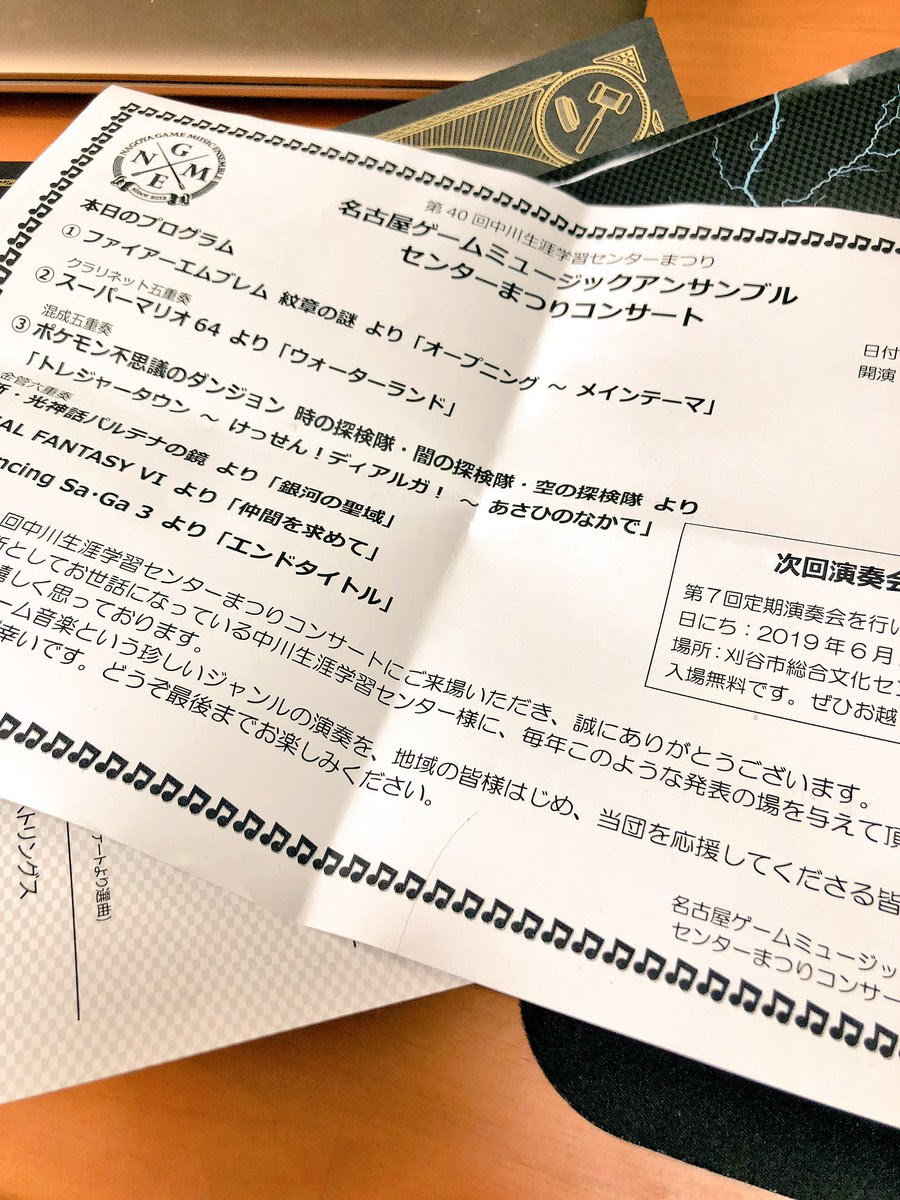 NAGOYA GAME MUSIC ENSEMBLE
N G M E
since 2012
第40回中川生涯学習センターまつり
名古屋ゲームミュージックアンサンブル
センターまつりコンサート
日付
開演
本日のプログラム
① ファイアーエムブレム 紋章の謎 より「オープニング ～ メインテーマ」
クラリネット五重奏
② スーパーマリオ64 より「ウォーターランド」
混成五重奏
③ ポケモン不思議のダンジョン 時の探検隊・闇の探検隊・空の探検隊 より
「トレジャータウン ～ けっせん！ディアルガ！ ～ あさひのなかで」
金管六重奏
・光神話パルテナの鏡 より「銀河の聖域」
AL FANTASY VI より「仲間を求めて」
ncing Sa・Ga 3 より「エンドタイトル」
次回演奏会
第7回定期演奏会を行い
日にち：2019年6月
場所：刈谷市総合文化セン
入場無料です。ぜひお越
回中川生涯学習センターまつりコンサートにご来場いただき、誠にありがとうございます。
所としてお世話になっている中川生涯学習センター様に、毎年このような発表の場を与えて頂
嬉しく思っております。
ーム音楽という珍しいジャンルの演奏を、地域の皆様はじめ、当団を応援してくださる皆
幸いです。どうぞ最後までお楽しみください。
名古屋ゲームミュージッ
センターまつりコンサー
アートより選曲)
トリングス